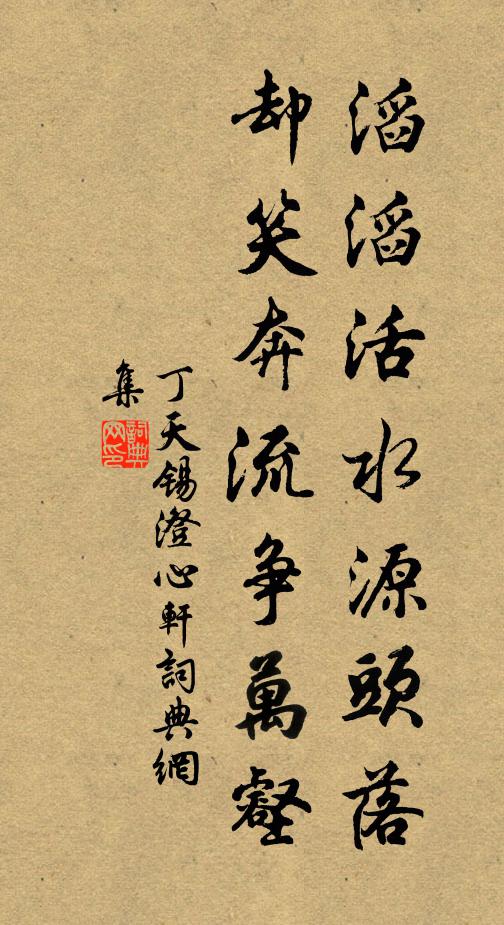 滔滔活水源頭落
却笑奔流争萬壑
丁天錫澄心軒詞典網
集
詞典網印